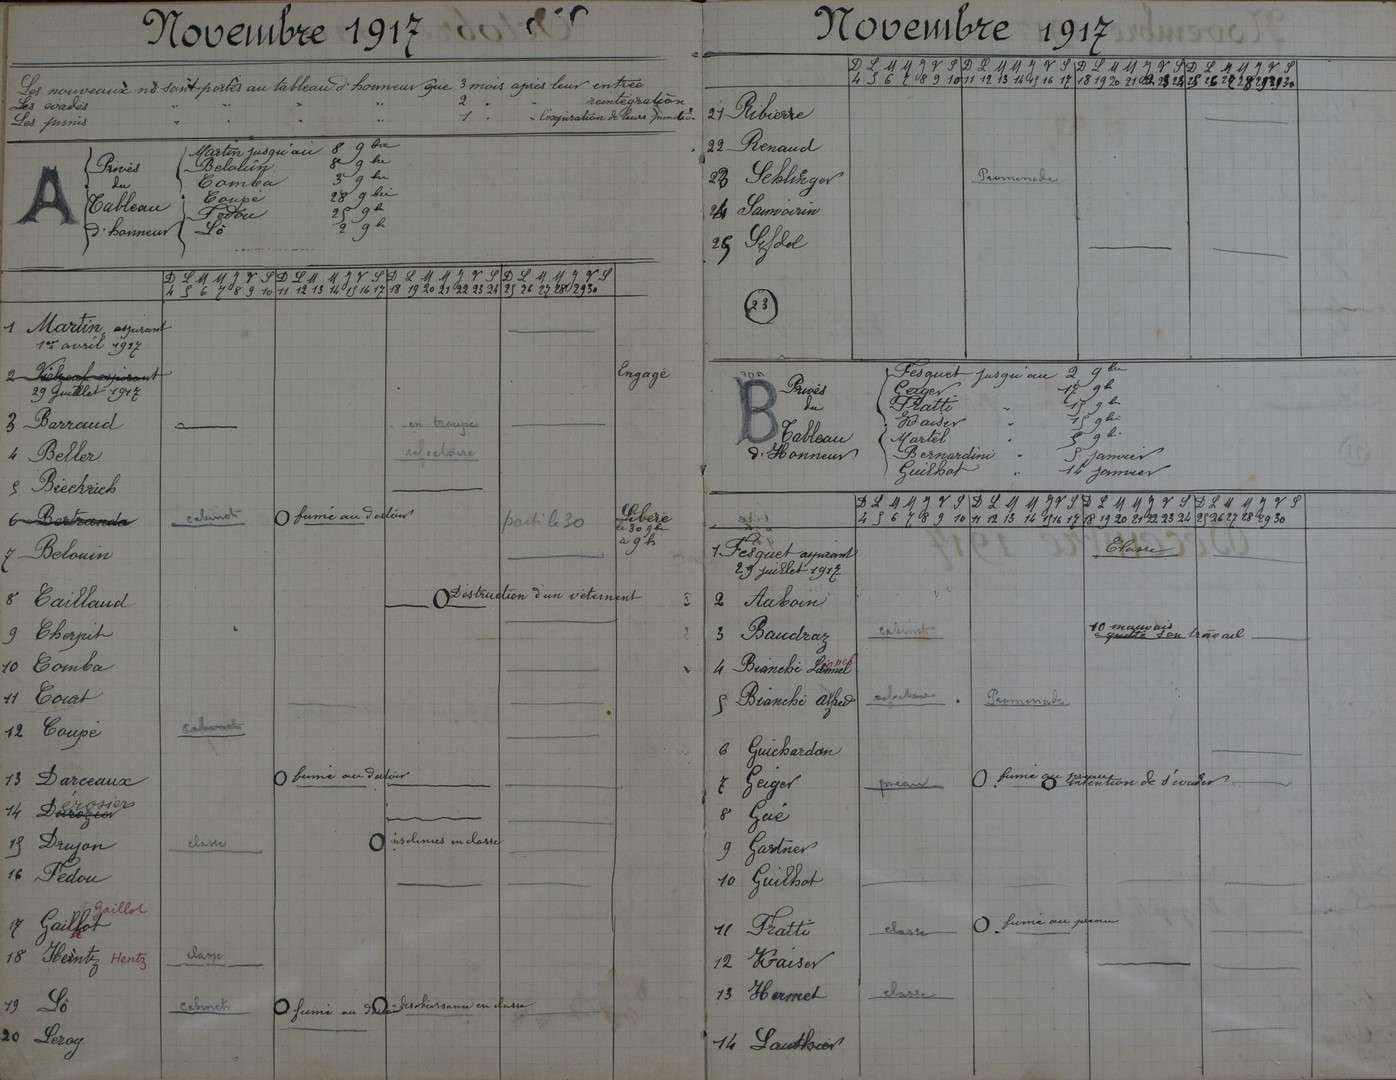 Novembre 1917
Les nouveaux ne sont portés au tableau d'honneur que 3 mois après leur entrée
Les évadés " " " " 2 " " reintégration
Les punis " " " " 1 " " l'expiration de leurs punitions
A
Privés du Tableau d'honneur
Martin jusqu'au 8 9bre
Belouin 8 9bre
Comba 3 9bre
Coupé 28 9bre
Fédou 25 9b
Lô 2 9b
D L M M J V S D L M M J V S D L M M J V S D L M M J V S
4 5 6 7 8 9 10 11 12 13 14 15 16 17 18 19 20 21 22 23 24 25 26 27 28 29 30
1 Martin aspirant
1er avril 1917
2 aspirant Engagé
29 Juillet 1917
3 Barraud en troupe
4 Beller refectoire
5 Biechrich
6 Bertrande cabinet fumé au dortoir parti le 30 Libéré
le 30 9bre
à 9 h
7 Belouin
8 Caillaud Destruction d'un vêtement
9 Cherpit
10 Comba
11 Corat
12 Coupé cabinet
13 Darceaux fumé au dortoir
14 Dérosier
15 Drujon classe insolences en classe
16 Fédou
Gaillot
17 Gaillot
18 Heintz Hentz classe
19 Lô cabinet fumé au dortoir desobéissance en classe
20 Leroy
Novembre 1917
D L M M J V S D L M M J V S D L M M J V S D L M M J V S
4 5 6 7 8 9 10 11 12 13 14 15 16 17 18 19 20 21 22 23 24 25 26 27 28 29 30
21 Ribierre
22 Renaud
23 Schlinger Promenade
24 Samvoirin
25
23
B
Privés du Tableau d'Honneur
Fesquet jusqu'au 2 9bre
Geiger 12 9b
Fratti " 15 9bre
Kaiser 15 9bre
Martel " 5 9b
Bernardini " 5 janvier
Guilhot " 14 janvier
D L M M J V S D L M M J V S D L M M J V S D L M M J V S
4 5 6 7 8 9 10 11 12 13 14 15 16 17 18 19 20 21 22 23 24 25 26 27 28 29 30
1 Fesquet aspirant Classe
29 juillet 1917
2 Auboin
3 Baudraz cabinet 10 mauvais
quitte son travail
4 Bianchi
5 Bianchi Alfred refectoire Promenade
6 Guichardan
7 Geiger preau fumé au preau intention de s'évader
8 Gué
9 Gartner
10 Guilhot
11 Fratti classe fumé au preau
12 Kaiser
13 Hermet classe
14 Lauthier